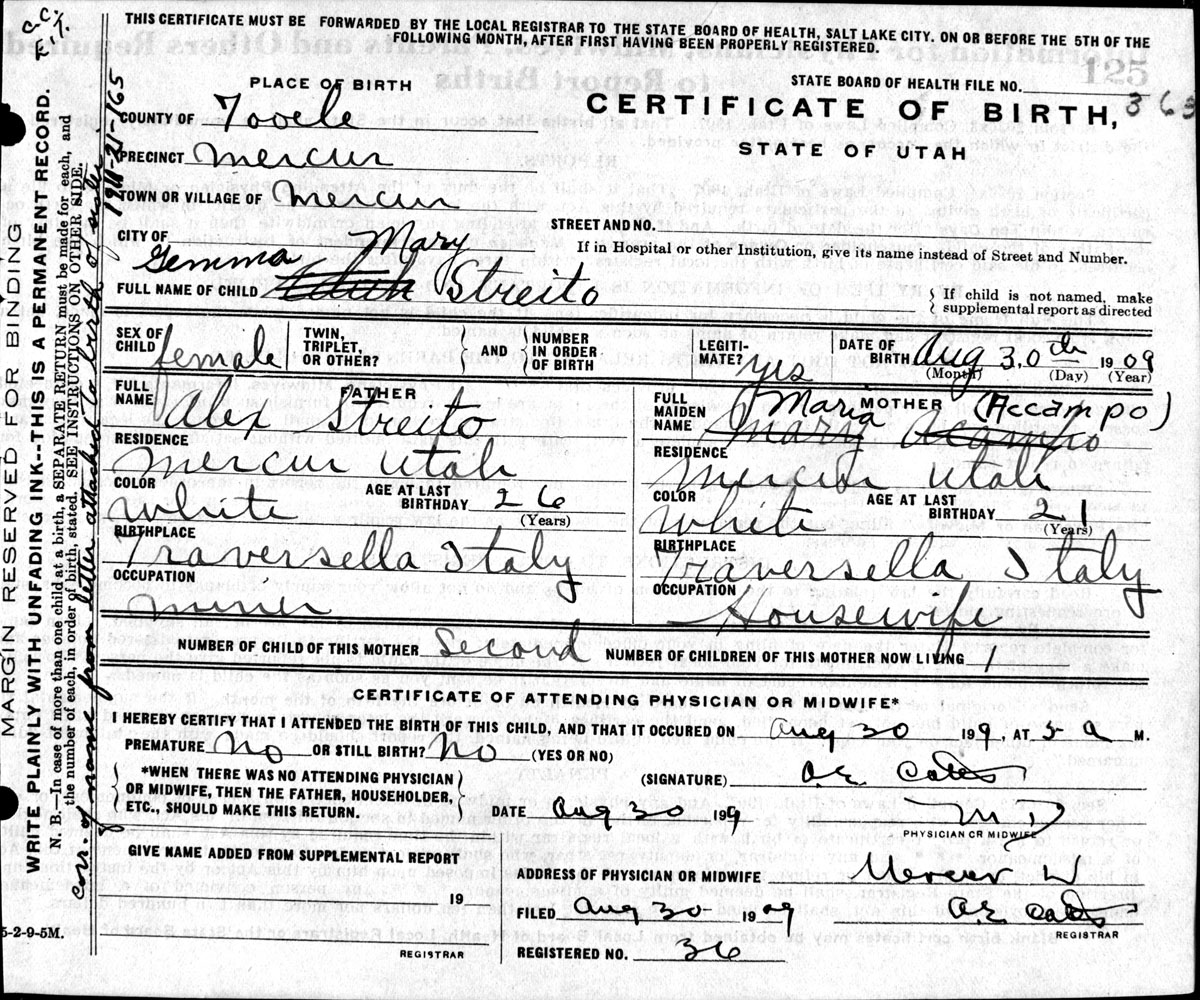 THIS CERTIFICATE MUST BE FORWARDED BY THE LOCAL REGISTRAR TO THE STATE BOARD OF HEALTH, SALT LAKE CITY, ON OR BEFORE THE 5TH OF THE
FOLLOWING MONTH, AFTER FIRST HAVING BEEN PROPERLY REGISTERED.
PLACE OF BIRTH
STATE BOARD OF HEALTH FILE NO.
CERTIFICATE OF BIRTH, 363
STATE OF UTAH
125
COUNTY OF Tooele
PRECINCT Mercur
TOWN OR VILLAGE OF Mercur
STREET AND NO.
CITY OF
If in Hospital or other Institution, give its name instead of Street and Number.
Gemma Mary
FULL NAME OF CHILD Edith Streito
If child is not named, make
supplemental report as directed
SEX OF CHILD female TWIN, TRIPLET, OR OTHER? AND NUMBER IN ORDER OF BIRTH LEGITI-MATE? yes DATE OF BIRTH Aug 30th 1909
(Month) (Day) (Year)
FATHER
FULL NAME Alex Streito
RESIDENCE
Mercur Utah
COLOR White AGE AT LAST BIRTHDAY 26 (Years)
BIRTHPLACE
Traversella Italy
OCCUPATION
miner
MOTHER
FULL MAIDEN NAME Maria (Accampo)
Mary Acampo
RESIDENCE
Mercur Utah
COLOR White AGE AT LAST BIRTHDAY 21 (Years)
BIRTHPLACE
Traversella, Italy
OCCUPATION
Housewife
NUMBER OF CHILD OF THIS MOTHER Second NUMBER OF CHILDREN OF THIS MOTHER NOW LIVING 1
CERTIFICATE OF ATTENDING PHYSICIAN OR MIDWIFE*
I HEREBY CERTIFY THAT I ATTENDED THE BIRTH OF THIS CHILD, AND THAT IT OCCURED ON Aug 30 199, AT 5 a M.
PREMATURE No OR STILL BIRTH? No (YES OR NO)
*WHEN THERE WAS NO ATTENDING PHYSICIAN
OR MIDWIFE, THEN THE FATHER, HOUSEHOLDER,
ETC., SHOULD MAKE THIS RETURN.
(SIGNATURE)
DATE Aug 30 199
M D
PHYSICIAN OR MIDWIFE
GIVE NAME ADDED FROM SUPPLEMENTAL REPORT
19
REGISTRAR
ADDRESS OF PHYSICIAN OR MIDWIFE Mercur
FILED Aug 30 1909
REGISTRAR
REGISTERED NO. 36
5-2-9-5M.
MARGIN RESERVED FOR BINDING
WRITE PLAINLY WITH UNFADING INK--THIS IS A PERMANENT RECORD.
N. B.—In case of more than one child at a birth, a SEPARATE RETURN must be made for each, and
the number of each, in order of birth, stated. SEE INSTRUCTIONS ON OTHER SIDE.
Corr. of name from letter attached to birth of sister
1911-21-165